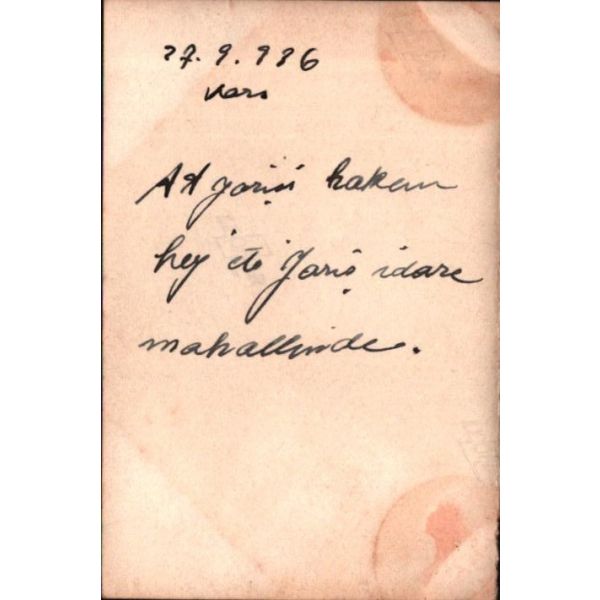 27.9.936
Kars
At yarışı hakem
hey'eti yarış idare
mahallinde.